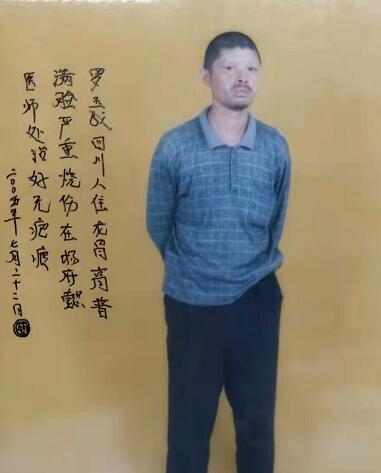 罗四川人住龙高普
满脸严重烧伤在府
医师处好无疤痕
二〇〇五年七月二十二日